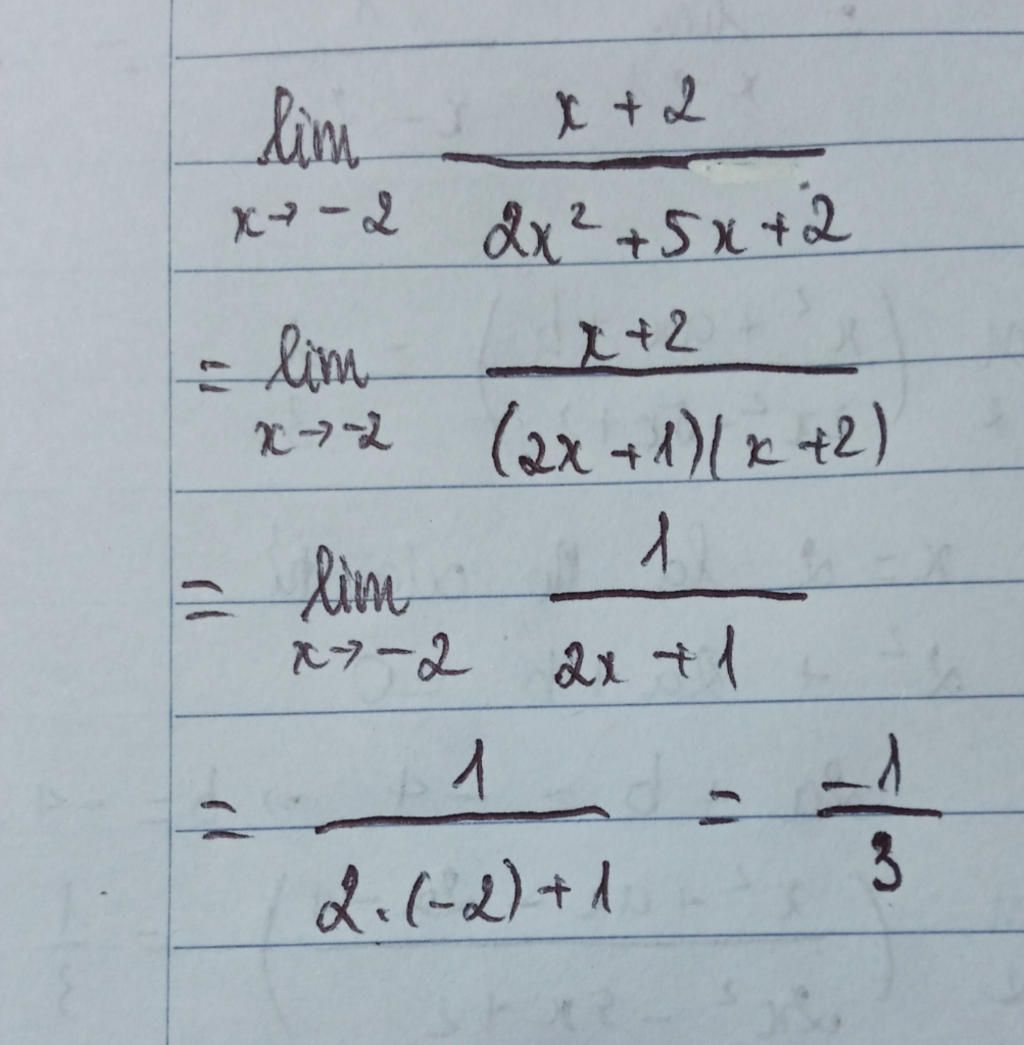 lim x + 2
x → -2 2x² + 5x + 2
= lim x + 2
x → -2 (2x + 1)(x + 2)
= lim 1
x → -2 2x + 1
= 1 = -1
2.(-2) + 1 3